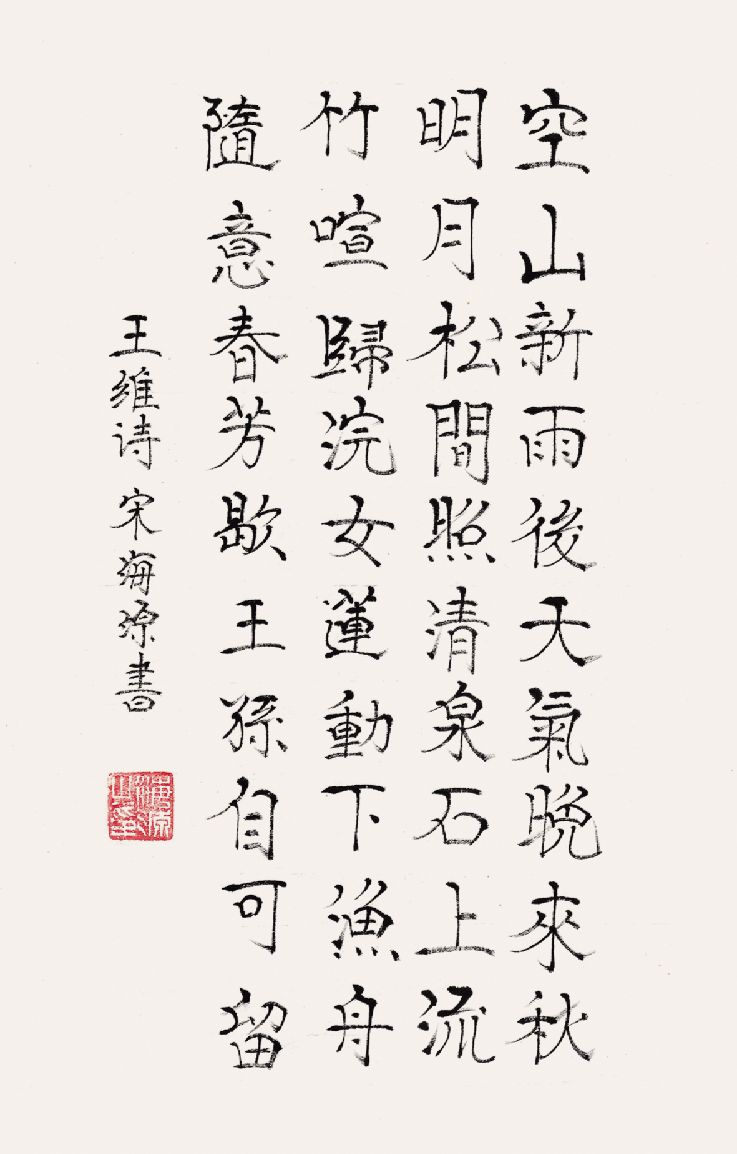 空山新雨後天氣晚來秋
明月松間照清泉石上流
竹喧歸浣女蓮動下漁舟
隨意春芳歇王孫自可留
王維诗宋海源書